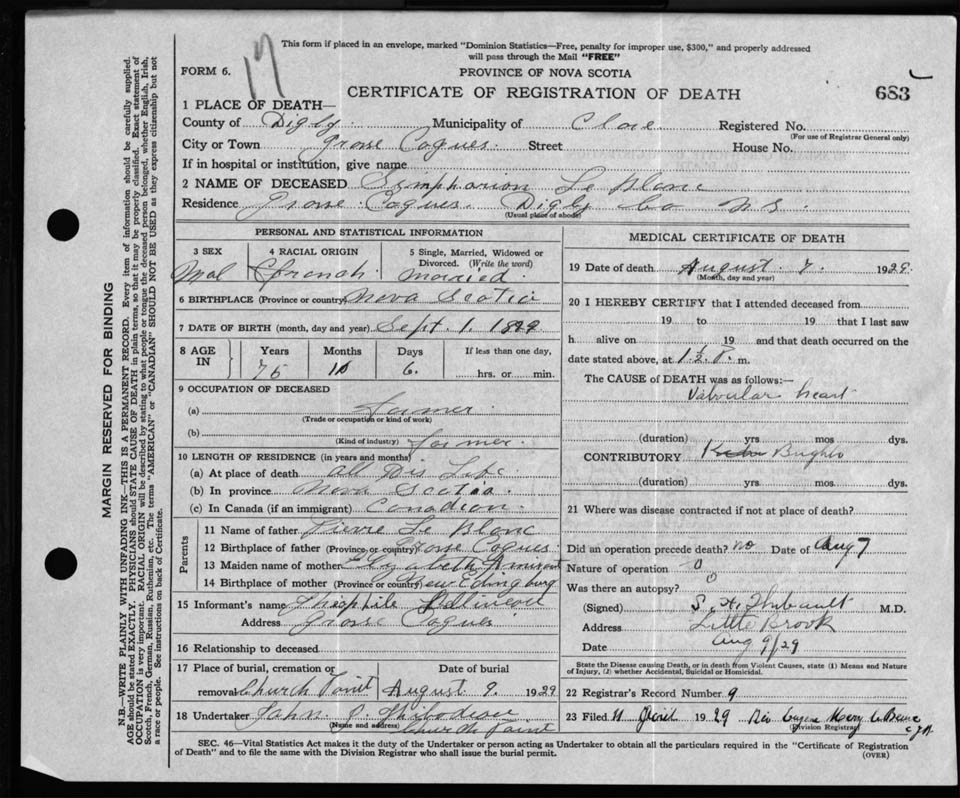 This form if placed in an envelope, marked "Dominion Statistics—Free, penalty for improper use, $300," and properly addressed
will pass through the Mail "FREE"
17
FORM 6.
PROVINCE OF NOVA SCOTIA
CERTIFICATE OF REGISTRATION OF DEATH
683
1 PLACE OF DEATH—
County of Digby Municipality of Clare Registered No.
(For use of Registrar General only)
City or Town Grosse Coques Street House No.
If in hospital or institution, give name
2 NAME OF DECEASED Symphorion Le Blanc
Residence Grosse Coques. Digby Co N.S.
(Usual place of abode)
PERSONAL AND STATISTICAL INFORMATION
3 SEX 4 RACIAL ORIGIN 5 Single, Married, Widowed or Divorced. (Write the word)
Mal French married
6 BIRTHPLACE (Province or country) Nova Scotia
7 DATE OF BIRTH (month, day and year) Sept. 1.
8 AGE IN Years Months Days If less than one day,
75 6. hrs. or min.
9 OCCUPATION OF DECEASED
(a) Farmer
(Trade or occupation or kind of work)
(b) Farmer.
(Kind of industry)
10 LENGTH OF RESIDENCE (in years and months)
(a) At place of death all His Life
(b) In province Nova Scotia.
(c) In Canada (if an immigrant) Canadian.
Parents
11 Name of father Pierre Le Blanc
12 Birthplace of father (Province or country) Grosse Coques
13 Maiden name of mother Elizabeth Amirault
14 Birthplace of mother (Province or country) New Edinburg
15 Informant's name Theophile
Address Grosse Coques
16 Relationship to deceased
17 Place of burial, cremation or removal Church Point
Date of burial
August 9. 1929
18 Undertaker John Thibodeau
(Name and address) Church Point
MEDICAL CERTIFICATE OF DEATH
19 Date of death August. 7. 1929
(Month, day and year)
20 I HEREBY CERTIFY that I attended deceased from
19 to 19 that I last saw
h alive on 19 and that death occurred on the
date stated above, at P. m.
The CAUSE of DEATH was as follows:—
Valvular heart
(duration) yrs mos dys.
CONTRIBUTORY Brights
(duration) yrs mos dys.
21 Where was disease contracted if not at place of death?
Did an operation precede death? No Date of Aug 7
Nature of operation 0
Was there an autopsy? 0
(Signed) Thibault M.D.
Address Little Brook
Date Aug 9/29
State the Disease causing Death, or in death from Violent Causes, state (1) Means and Nature
of Injury, (2) whether Accidental, Suicidal or Homicidal.
22 Registrar's Record Number 9
23 Filed 1929 Rev Eugene
(Division Registrar)
SEC. 46—Vital Statistics Act makes it the duty of the Undertaker or person acting as Undertaker to obtain all the particulars required in the "Certificate of Registration
of Death" and to file the same with the Division Registrar who shall issue the burial permit.
(OVER)
MARGIN RESERVED FOR BINDING
N.B.—WRITE PLAINLY WITH UNFADING INK—THIS IS A PERMANENT RECORD. Every item of information should be carefully supplied.
AGE should be stated EXACTLY. PHYSICIANS should STATE CAUSE OF DEATH in plain terms, so that it may be properly classified. Exact statement of
OCCUPATION is very important. RACIAL ORIGIN will be described by stating to what people or tongue the deceased person belonged, whether English, Irish,
Scotch, French, German, Russian, Ruthenian, etc. The terms "AMERICAN" or "CANADIAN" SHOULD NOT BE USED as they express citizenship but not
a race or people. See instructions on back of Certificate.